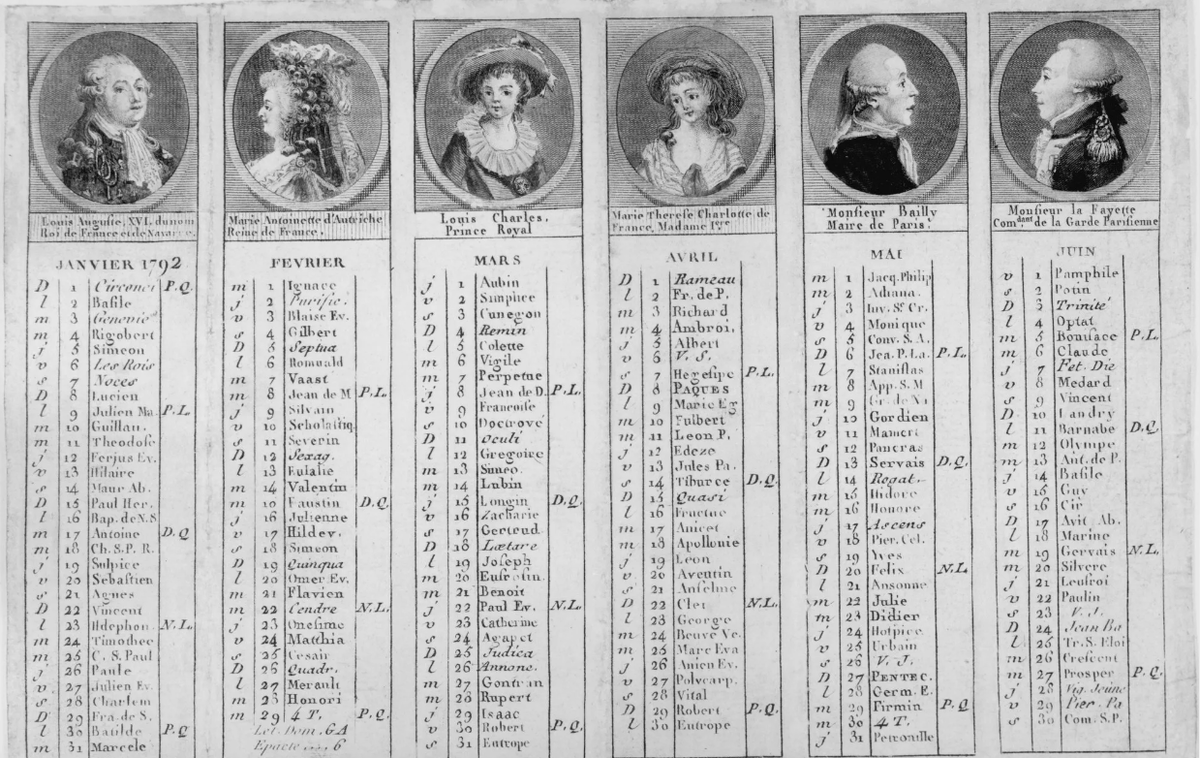 Louis Auguste, XVI. du nom
Roi de France et de Navarre.
JANVIER 1792
D 1 Circonci P.Q.
l 2 Basile
m 3 Geneviè
m 4 Rigobert
j 5 Simeon
v 6 Les Rois
s 7 Noces
D 8 Lucien
l 9 Julien Ma. P.L.
m 10 Guillau.
m 11 Theodose
j 12 Ferjus Ev.
v 13 Hilaire
s 14 Maur Ab.
D 15 Paul Her.
l 16 Bap. de N.S
m 17 Antoine D.Q
m 18 Ch. S. P. R.
j 19 Sulpice
v 20 Sebastien
s 21 Agnes
D 22 Vincent
l 23 Ildephon N.L.
m 24 Timothee
m 25 C. S. Paul
j 26 Paule
v 27 Julien Ev.
s 28 Charlem
D 29 Fra. de S.
l 30 Batilde P.Q
m 31 Marcele
Marie Antoinette d'Autriche
Reine de France.
FEVRIER
m 1 Ignace
j 2 Purific.
v 3 Blaise Ev.
s 4 Gilbert
D 5 Septua
l 6 Romuald
m 7 Vaast
m 8 Jean de M P.L.
j 9 Silvain
v 10 Scholastiq
s 11 Severin
D 12 Sexag.
l 13 Eulalie
m 14 Valentin
m 15 Faustin D.Q.
j 16 Julienne
v 17 Hildev.
s 18 Simeon
D 19 Quinqua
l 20 Omer Ev.
m 21 Flavien
m 22 Cendre N.L.
j 23 Onesime
v 24 Matthia
s 25 Cesair
D 26 Quadr.
l 27 Merault
m 28 Honori
m 29 4 T. P.Q.
Let. Dom. GA
Epacte .... 6
Louis Charles,
Prince Royal
MARS
j 1 Aubin
v 2 Simplice
s 3 Cunegon
D 4 Remin
l 5 Colette
m 6 Vigile
m 7 Perpetue
j 8 Jean de D. P.L.
v 9 Francoise
s 10 Doctrové
D 11 Oculi
l 12 Gregoire
m 13 Simeo.
m 14 Lubin
j 15 Longin D.Q.
v 16 Zacharie
s 17 Gertrud
D 18 Lætare
l 19 Joseph
m 20
m 21 Benoit
j 22 Paul Ev. N.L.
v 23 Catherine
s 24 Agapet
D 25 Judica
l 26 Annonc.
m 27 Gontran
m 28 Rupert
j 29 Isaac
v 30 Robert P.Q.
s 31 Eutrope
Marie Therese Charlotte de
France, Madame 1ere
AVRIL
D 1 Rameau
l 2 Fr. de P.
m 3 Richard
m 4 Ambroi.
j 5 Albert
v 6 V. S.
s 7 Hegesipe P.L.
D 8 PAQUES
l 9 Marie Eg
m 10 Fulbert
m 11 Leon P.
j 12 Edeze
v 13 Jules Pa.
s 14 Tiburce D.Q.
D 15 Quasi
l 16 Fructue
m 17 Anicet
m 18 Apollonie
j 19 Leon
v 20 Aventin
s 21 Anselme
D 22 Clet N.L.
l 23 George
m 24 Beuve Ve.
m 25 Marc Eva
j 26 Anien Ev.
v 27 Polycarp.
s 28 Vital
D 29 Robert P.Q.
l 30 Eutrope
Monsieur Bailly
Maire de Paris.
MAI
m 1 Jacq. Philip
m 2 Adiana.
j 3 Inv. Ste Cr.
v 4 Monique
s 5 Conv. S. A.
D 6 Jea. P. La. P.L.
l 7 Stanislas
m 8 App. S. M
m 9 Gr. de Na
j 10 Gordien
v 11 Mamert
s 12 Pancras
D 13 Servais D.Q.
l 14 Rogat.
m 15 Isidore
m 16 Honore
j 17 Ascens
v 18 Pier. Cel.
s 19 Yves
D 20 Felix N.L
l 21 Ansonne
m 22 Julie
m 23 Didier
j 24 Hospice
v 25 Urbain
s 26 V. J.
D 27 PENTEC.
l 28 Germ. E.
m 29 Firmin P.Q
m 30 4 T.
j 31 Petronille
Monsieur la Fayette
Com.dant de la Garde Parisienne
JUIN
v 1 Pamphile
s 2 Potin
D 3 Trinité
l 4 Optat
m 5 Boniface P.L.
m 6 Claude
j 7 Fet. Die
v 8 Medard
s 9 Vincent
D 10 Landry
l 11 Barnabe D.Q.
m 12 Olympe
m 13 Ant. de P.
j 14 Basile
v 15 Guy
s 16 Cir
D 17 Avit Ab.
l 18 Marine
m 19 Gervais N.L.
m 20 Silvere
j 21 Leufroi
v 22 Paulin
s 23 V. J.
D 24 Jean Ba
l 25 Tr. S. Eloi
m 26 Crescent
m 27 Prosper P.Q.
j 28 Vig. Jeune
v 29 Pier. Pa
s 30 Com. S. P.